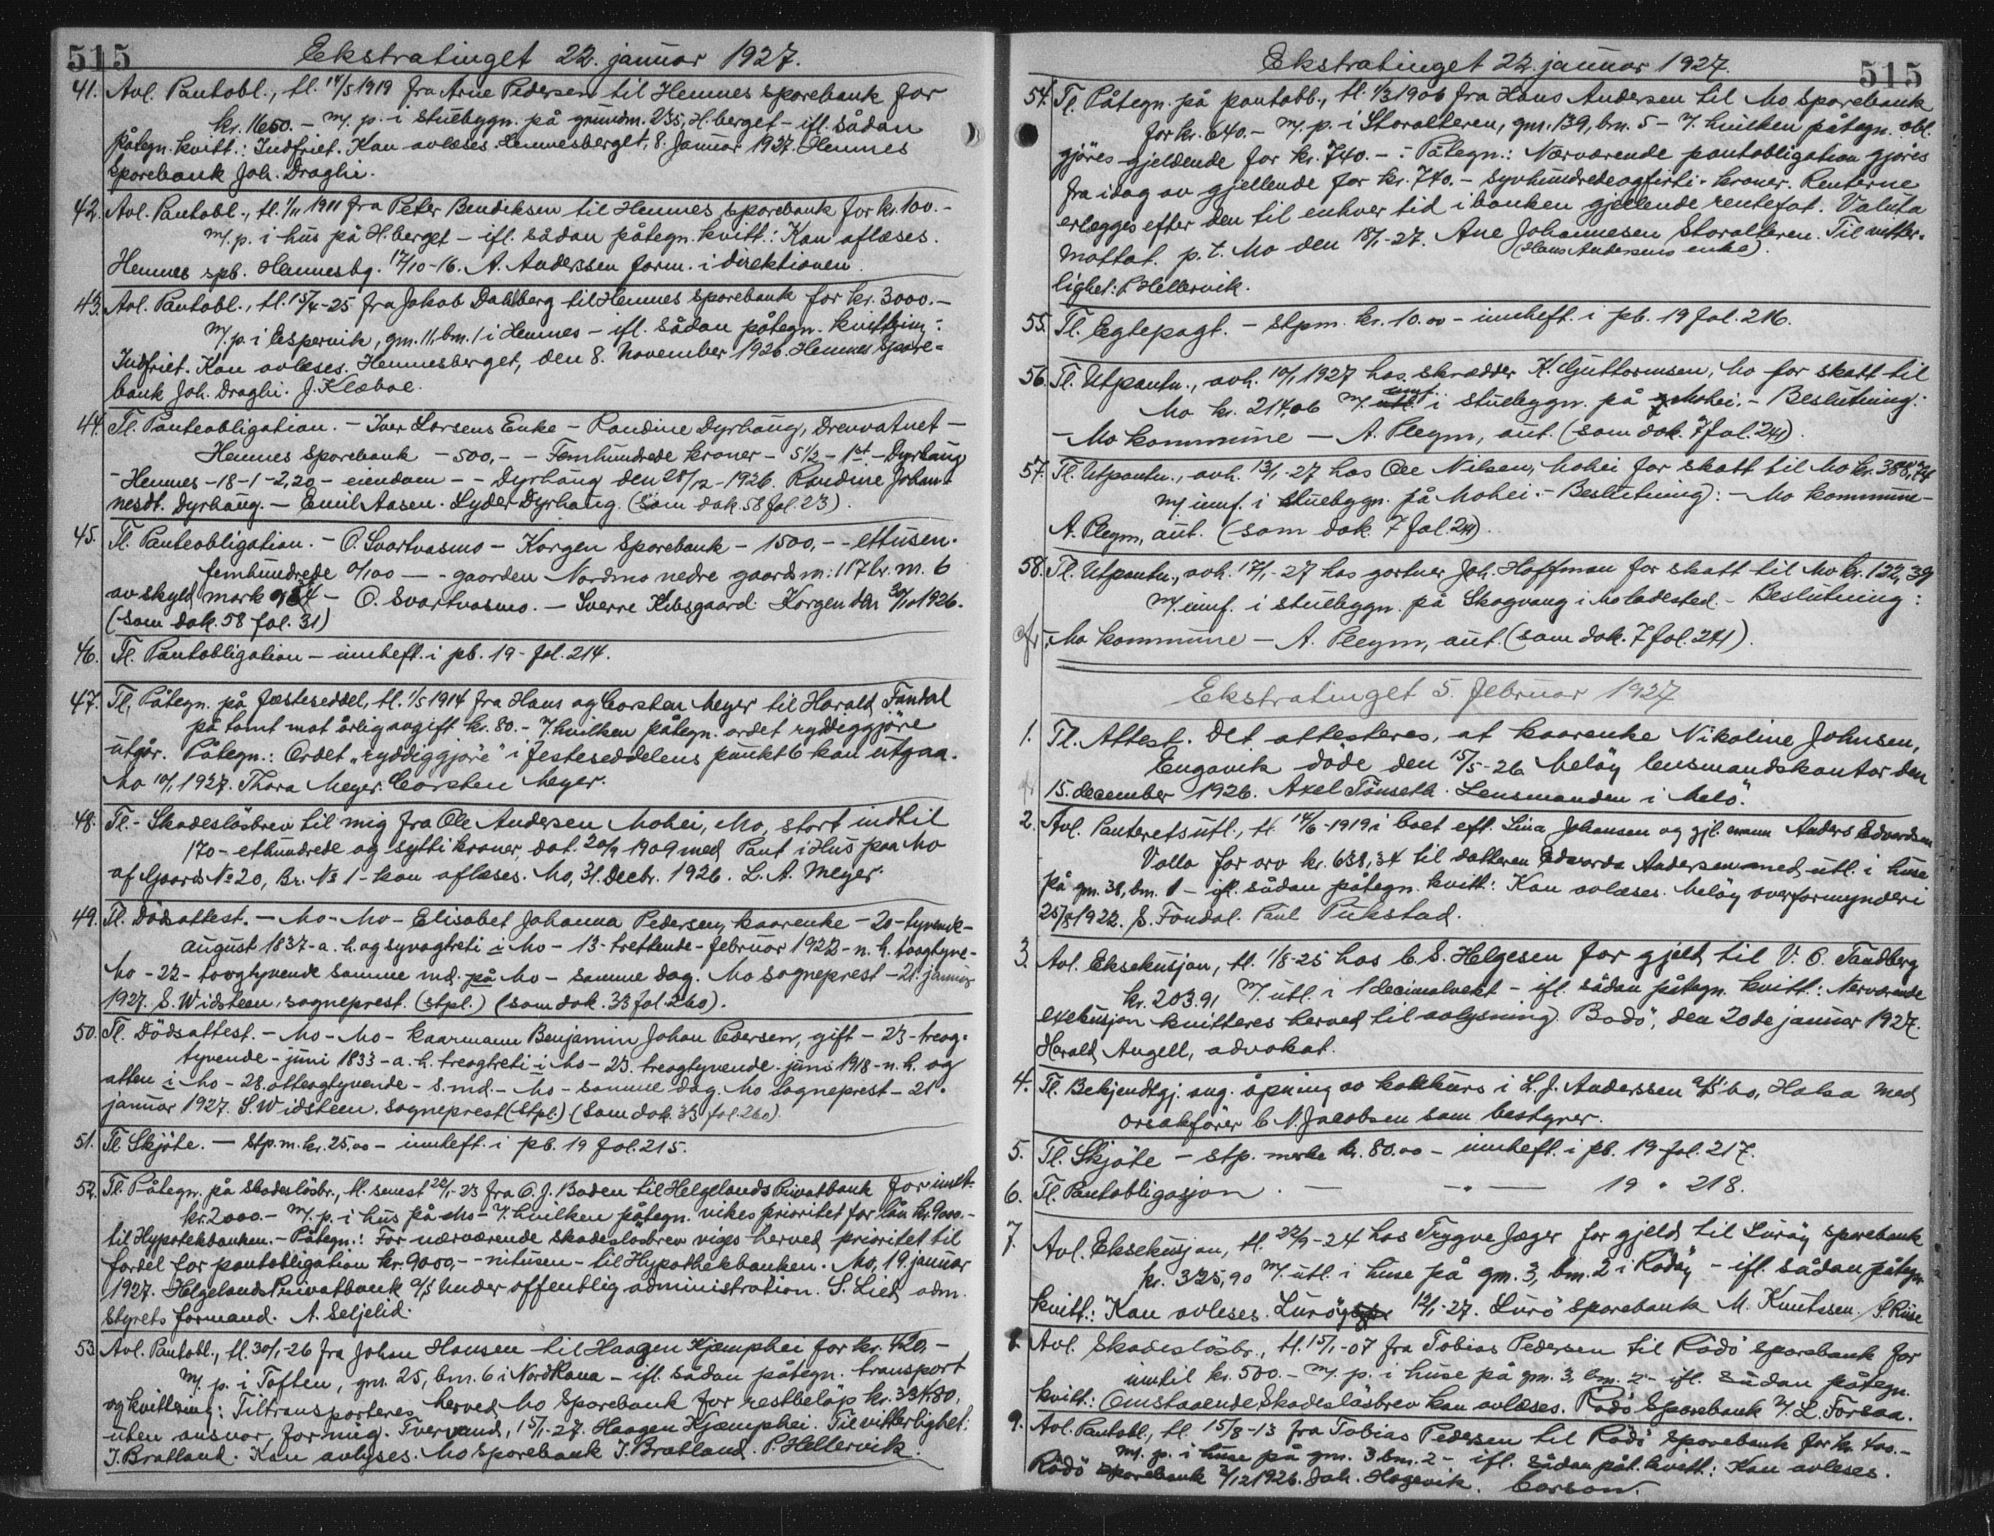 515
Ekstratinget 22. januar 1927.
41. Avl. Pantobl., tl. 14/5 1919 fra Arne Pedersen til Hemnes sparebank for
kr. 1650.- m/. p. i stuebygn. på grundm. 235, H.berget - ifl. sådan
påtegn. kvitt.: Indfriet. Kan avlæses. Hemnesberget, 8. Januar 1927. Hemnes
Sparebank Joh. Draghi.
42. Avl. Pantobl., tl. 1/11 1911 fra Peter Bendiksen til Hemnes sparebank for kr. 100.-
m/. p. i hus på H.berget - ifl. sådan påtegn. kvitt.: Kan aflæses.
Hemnes spb. Hemnesbg. 17/10-16. A. Anderssen form. i direktionen.
43. Avl. Pantobl., tl. 15/4-25 fra Jakob Dahlberg til Hemnes sparebank for kr. 3000.-
m/. p. i Espervik, gm. 11, bm. 1 i Hemnes - ifl. sådan påtegn. kvittering:
Indfriet. Kan avlæses. Hemnesberget, den 8. November 1926. Hemnes Spare-
bank Joh. Draghi. J. Klæboe.
44. Tl. Panteobligation. - Iver Larsens Enke - Randine Dyrhaug, Drevvatnet -
Hemnes Sparebank - 500,- - Femhundrede kroner - 5 1/2 - 1st - Dyrhaug
- Hemnes - 18 - 1 - 2,20 - eiendom - - Dyrhaug den 28/12 - 1926. Randine Johan-
nesdt. Dyrhaug. - Emil Aasen. Lyder Dyrhaug (som dok. 58 fol. 23).
45. Tl. Panteobligation. - O. Svartvasmo - Korgen Sparebank - 1500,- - ettusen-
femhundrede 0/100 - - gaarden Nordmo nedre gaards m: 117 br. m. 6
av skyld mark - O. Svartvasmo. - Sverre Kibsgaard Korgen den 30/10 1926.
(som dok. 58 fol. 31)
46. Tl. Pantobligation - innheft. i pb. 19 - fol. 214.
47. Tl. Påtegn. på fæsteseddel, tl. 1/5 1914 fra Hans og Carsten Meyer til Harald Fondal
på tomt mot årlig avgift kr. 80.- v/. hvilken påtegn. ordet ryddiggjöre
utgår. Påtegn.: Ordet „ryddiggjöre" i festeseddelens punkt 6 kan utgaa.
Mo 10/1 1927. Thora Meyer. Carsten Meyer.
48. Tl. - Skadeslösbrev til mig fra Ole Andersen Mohei, Mo, stort indtil
170 - ethundrede og sytti kroner, dat. 20/9 1909 med Pant i Hus paa Mo
af Gaards No 20, Br. No 1 - kan aflæses. Mo, 31. Decbr. 1926. L. A. Meyer.
49. Tl. Dödsattest. - Mo - Mo - Elisabet Johanna Pedersen, kaarenke - 20 - tyvende -
august 1837 - a. h. og syvogtreti i Mo - 13 - trettende - februar 1922 - n. h. toogtyve -
Mo - 22 - toogtyvende samme md. på Mo - samme dag. Mo sogneprest - 21. januar
1927. S. Widsteen, sogneprest. (stpl.) (som dok. 33 fol. 260).
50. Tl. Dödsattest. - Mo - Mo - kaarmann Benjamin Johan Pedersen, gift - 23 - treog-
tyvende - juni 1833 - a. h. treogtreti i Mo - 23. treogtyvende. juni 1918 - n. h. og
atten i Mo - 28. otteogtyvende - s. md. - Mo - samme dag. Mo sogneprest - 21.
januar 1927. S. Widsteen. sogneprest (stpl.) (som dok. 33 fol. 260).
51. Tl. Skjöte. - stp. m. kr. 25,00 - innheft. i pb. 19 fol. 215.
52. Tl. Påtegn. på Skadeslösbr., tl. senest 22/1-23 fra O. J. Baden til Helgelands Privatbank for inntil
kr. 2000.- m/. p. i hus på Mo - v/. hvilken påtegn. vikes prioritet for lån kr. 9000.-
til Hypotekbanken. - Påtegn.: For nærværende skadeslösbrev viges herved prioritet til
fordel for pantobligation kr. 9000,- - nitusen - til Hypothekbanken. Mo, 19. januar
1927. Helgelands Privatbank A/S under offentlig administration. S. Lied adm.
styrets formand. A. Seljelid.
53. Avl. Pantobl., tl. 30/1-26 fra Johan Hansen til Haagen Kjemphei for kr. 420,-
m/. p. i Toften, gm. 25, bm. 6 i Nord Rana - ifl. sådan påtegn. transport
og kvittering: Tiltransporteres herved Mo Sparebank for restbelöp kr.
uten ansvar for mig. Tverrand, 15/1-27. Haagen Kjæmphei. Til vitterlighet:
J. Bratland. Kan avlyses. Mo sparebank J. Bratland. P. Hellervik.
Ekstratinget 22. januar 1927.
515
54. Tl. Påtegn. på pantobl., tl. 1/3 1906 fra Hans Andersen til Mo sparebank
for kr. 640.- m/. p. i Storalteren, gm. 139, bm. 5 - v/. hvilken påtegn. obl.
gjöres gjeldende for kr. 740.- : Påtegn.: Nærværende pantobligation gjöres
fra idag av gjellende for kr. 740.- syvhundredeogfirti-kroner. Renterne
erlægges efter den til enhver tid i banken gjellende rentefot. Valuta
mottat. p. t. Mo den 18/1-27. Ane Johannesen Storalteren. Til vitter-
(Hans Andersens enke)
lighet: P. Hellervik.
55. Tl. Egtepagt. - stpm. kr. 10.00 - innheft. i pb. 19 fol. 216.
56. Tl. Utpantn., avh. 10/1 1927 hos skrædder K. Guttormsen, Mo for skatt til
Mo kr. 214,06 m/. innf. i stuebygn. på Mohei. - Beslutning:
- Mo kommune - A. Pleym, aut. (som dok. 7 fol. 241).
57. Tl. Utpantn., avh. 13/1-27 hos Ole Nilsen, Mohei for skatt til Mo kr. 388,74
m/. innf. i stuebygn. på Mohei. - Beslutning: - Mo kommune -
A. Pleym, aut. (som dok. 7 fol. 241).
58. Tl. Utpantn., avh. 17/1-27 hos gartner Joh. Hoffman for skatt til Mo kr. 122,39
m/. innf. i stuebygn. på Skogvang i Mo ladested. - Beslutning:
Mo kommune - A. Pleym, aut. (som dok. 7 fol. 241).
Ekstratinget 5. februar 1927
1. Tl. Attest. Det attesteres, at kaarenke Nikoline Johnsen,
Engavik döde den 15/5-26 Melöy lensmandskontor den
15. december 1926. Axel Tönseth. Lensmanden i Melö.
2. Avl. Panteretsutl., tl. 14/6-1919 i boet eft. Lina Johansen og gjl. mann Anders Edvardsen
Valla for arv kr. 638,34 til datteren Edvarda Andersen med utl. i huse
på gm. 38, bm. 1 - ifl. sådan påtegn. kvitt: Kan avlæses. Melöy overformynderi
25/8 1922. S. Fondal. Paul Pukstad.
3. Avl. Eksekusjon, tl. 1/8-25 hos C. S. Helgesen for gjeld til V. O. Tandberg
kr. 203.91 m/. utl. i 1 decimalvekt - ifl. sådan påtegn. kvitt: Nærværende
exekusjon kvitteres herved til avlysning. Bodö, den 20de januar 1927.
Harald Angell, advokat.
4. Tl. Bekjendtgj. ang. åpning av konkurs i L. J. Anderssen A/S' bo, Halsa med
orsakförer C. N. Jacobsen som bestyrer.
5. Tl. Skjöte - stp. merke kr. 80.00 - innheft. i pb. 19 fol. 217.
6. Tl. Pantobligasjon. - - " - 19 " 218.
7. Avl. Eksekusjon, tl. 22/9-24 hos Trygve Jæger for gjeld til Luröy sparebank
kr. 325,90 m/. utl. i huse på gm. 3, bm. 2 i Rödöy - ifl. sådan påtegn.
kvitt.: Kan avleses. Luröy 12/1-27. Lurö sparebank M. Knutssen. Riise
8. Avl. Skadeslösbr., tl. 15/1-07 fra Tobias Pedersen til Rödö sparebank for
inntil kr. 500.- m/. p. i huse på gm. 3, bm. 2 - ifl. sådan påtegn.
kvitt: Omstaaende Skadeslösbrev kan avlæses. Rödö Sparebank v/. L. Forsaa.
9. Avl. Pantobl., tl. 15/8-13 fra Tobias Pedersen til Rödö sparebank for kr. 400.-
m/. p. i huse på gm. 3 bm. 2 - ifl. sådan påt. kvitt.: Kan avleses.
Rödö sparebank 2/12 1926. Joh. Hagevik.